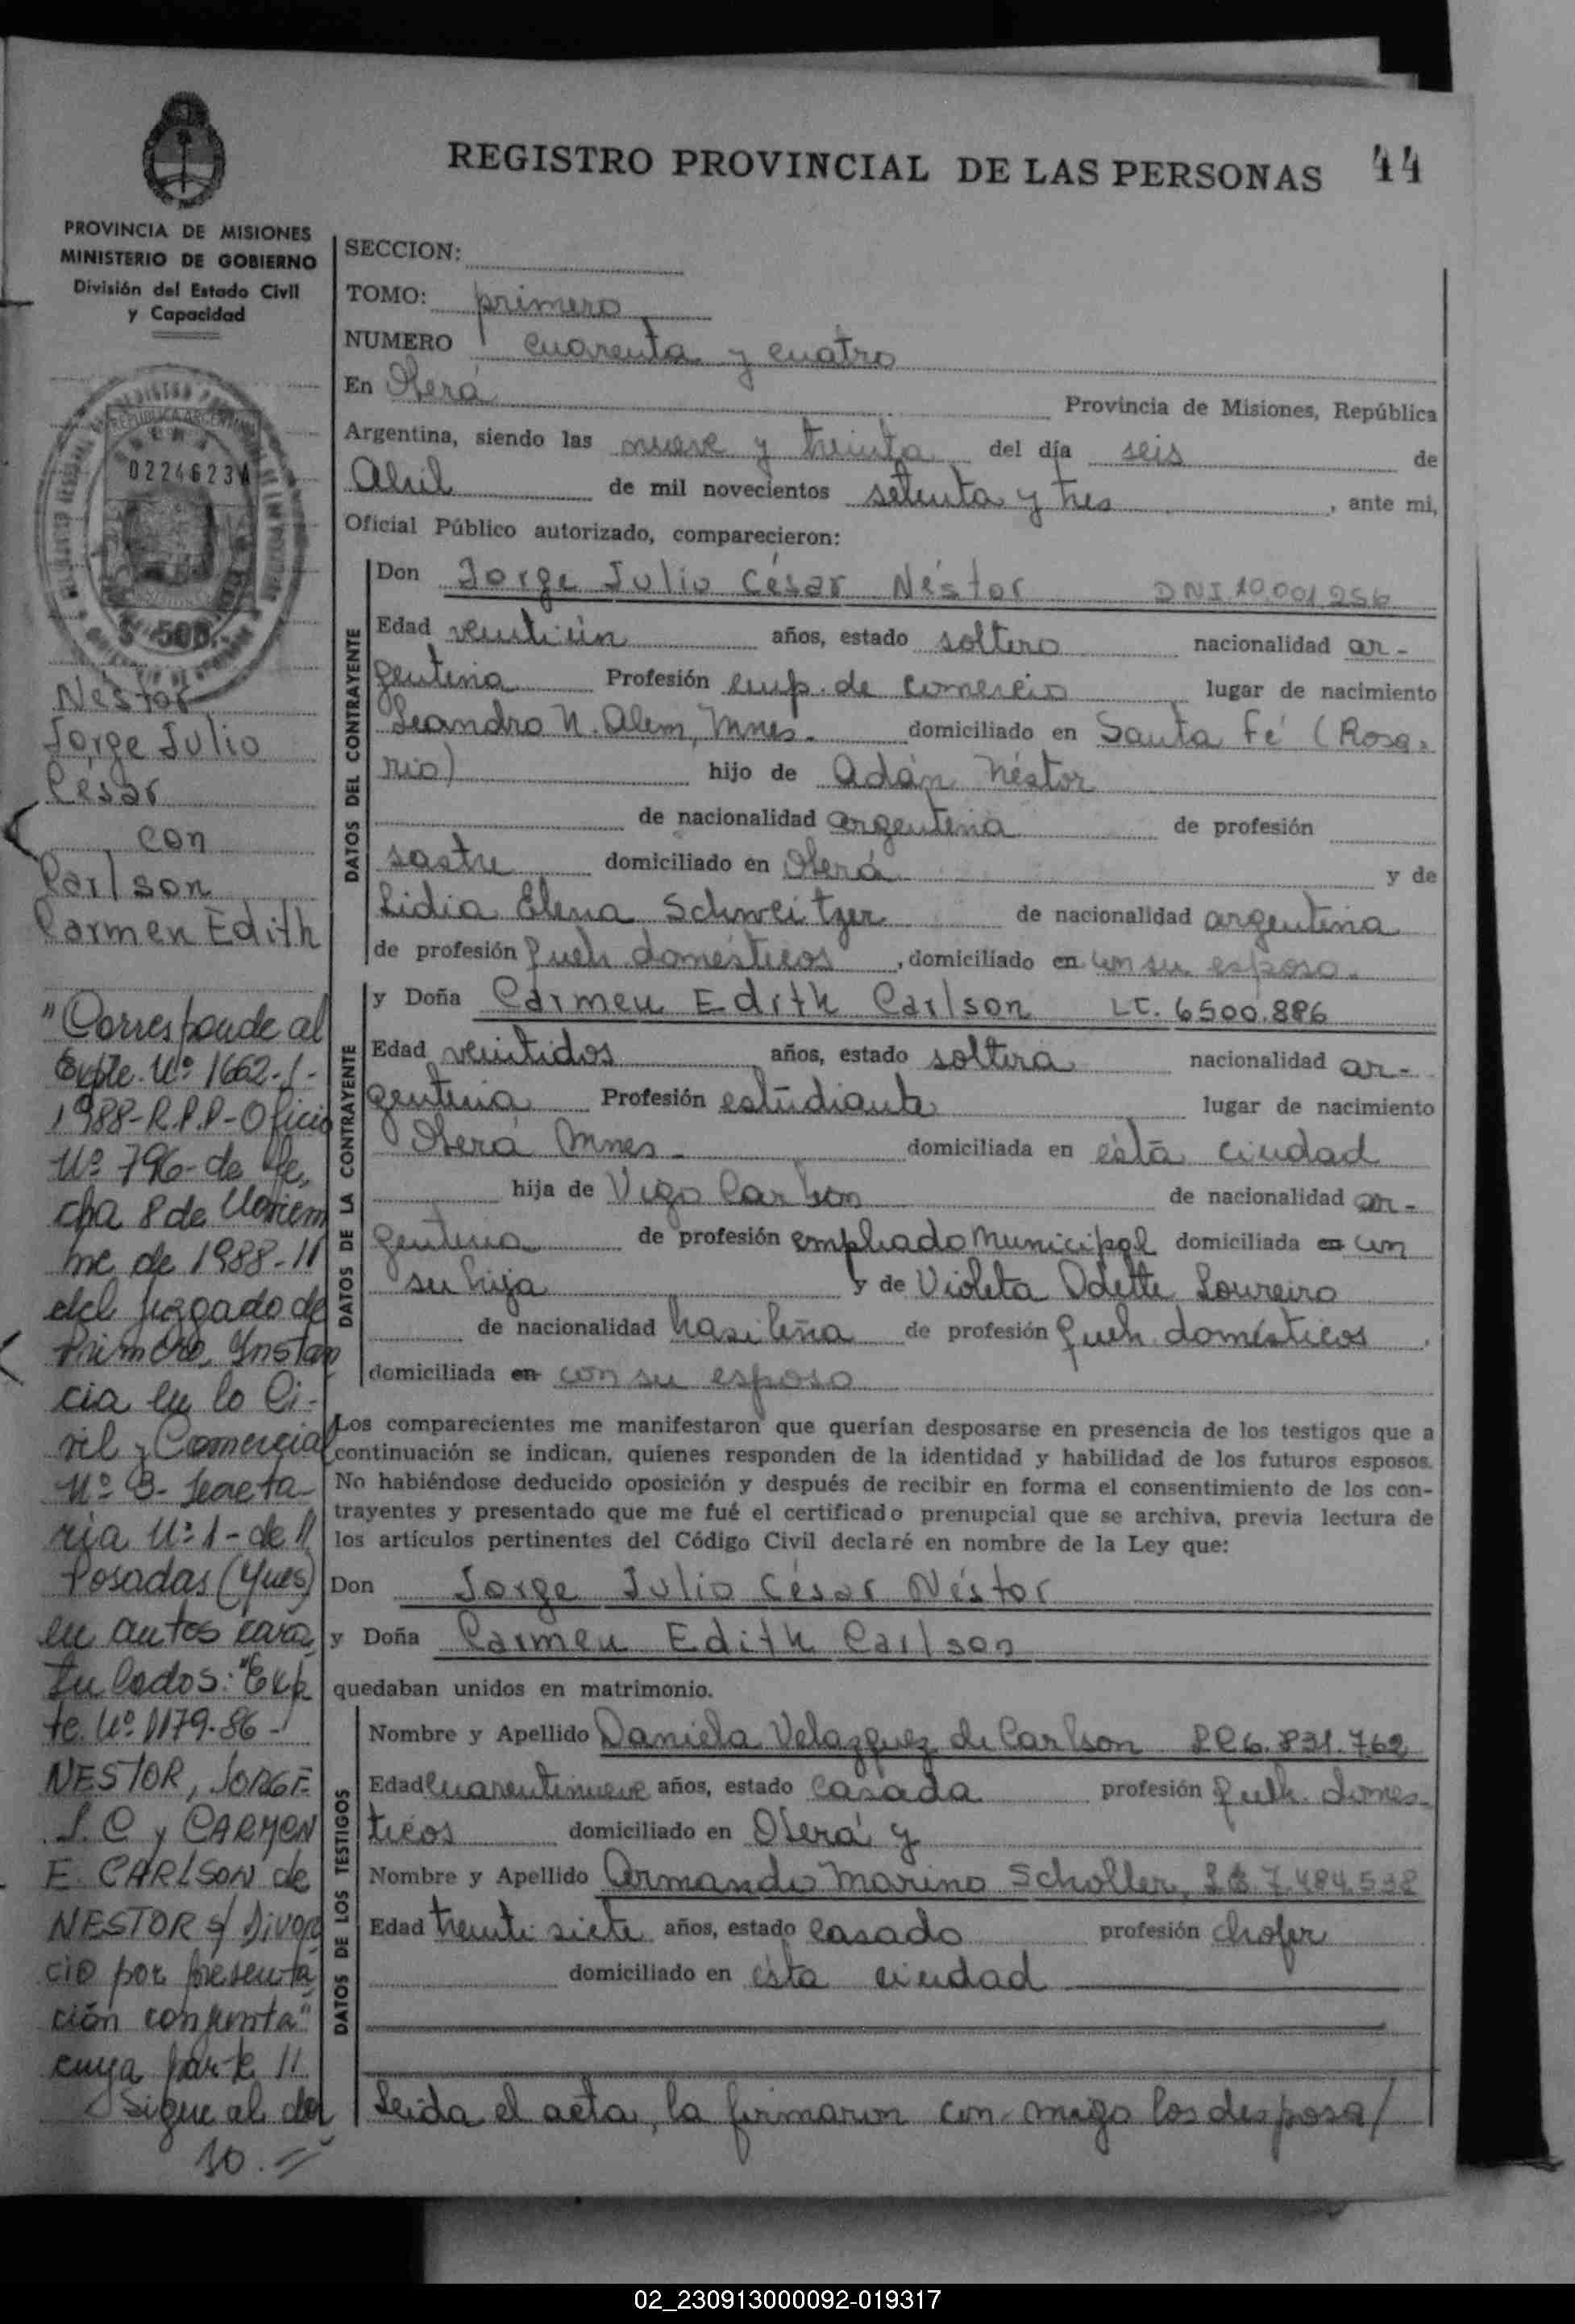 REGISTRO PROVINCIAL DE LAS PERSONAS 44
PROVINCIA DE MISIONES
MINISTERIO DE GOBIERNO
División del Estado Civil
y Capacidad
REPUBLICA ARGENTINA
0224623A
$ 500.-
Nestor
Jorge Julio
César
con
Carlson
Carmen Edith
"Corresponde al
Expte. Nº 1662-1-
1988-R.P.P-Oficio
Nº 796-de fe,
cha 8 de Noviem
bre de 1988-11
del Juzgado de
Primera Instan
cia en lo Ci-
vil y Comercial
Nº 3- Secreta-
ria Nº 1-de 11
Posadas (Mnes)
en autos cara
tulados: "Exp
te. Nº 1179-86-
NESTOR, JORGE
J.C y CARMEN
E. CARLSON de
NESTOR s/ Divor
cio por presenta
ción conjunta"
cuya parte 11
Sigue al dor
so.=
SECCION:
TOMO: primero
NUMERO cuarenta y cuatro
En Oberá Provincia de Misiones, República
Argentina, siendo las nueve y treinta del día seis de
Abril de mil novecientos setenta y tres, ante mi,
Oficial Público autorizado, comparecieron:
DATOS DEL CONTRAYENTE
Don Jorge Julio César Néstor DNI 10.001.256
Edad veintiún años, estado soltero nacionalidad ar-
gentina Profesión emp. de comercio lugar de nacimiento
Leandro N. Alem, Mnes. domiciliado en Santa Fé (Rosa-
rio) hijo de Adán Néstor
de nacionalidad argentina de profesión
sastre domiciliado en Oberá y de
Lidia Elena Schweitzer de nacionalidad argentina
de profesión queh domésticos, domiciliado en con su esposo.
DATOS DE LA CONTRAYENTE
y Doña Carmen Edith Carlson LC. 6500.886
Edad veintidos años, estado soltera nacionalidad ar-
gentina Profesión estudiante lugar de nacimiento
Oberá Mnes. domiciliada en ésta ciudad
hija de Vigo Carlson de nacionalidad ar-
gentina de profesión empleado Municipal domiciliada en con
su hija y de Violeta Odette Loureiro
de nacionalidad brasileña de profesión queh. domésticos,
domiciliada en con su esposo
Los comparecientes me manifestaron que querían desposarse en presencia de los testigos que a
continuación se indican, quienes responden de la identidad y habilidad de los futuros esposos.
No habiéndose deducido oposición y después de recibir en forma el consentimiento de los con-
trayentes y presentado que me fué el certificado prenupcial que se archiva, previa lectura de
los artículos pertinentes del Código Civil declaré en nombre de la Ley que:
Don Jorge Julio César Néstor
y Doña Carmen Edith Carlson
quedaban unidos en matrimonio.
DATOS DE LOS TESTIGOS
Nombre y Apellido Daniela Velazquez de Carlson LC 6.831.762
Edad cuarentinueve años, estado casada profesión queh. domés-
ticos domiciliado en Oberá y
Nombre y Apellido Armando Marino Scholler, LE 7.484.538
Edad treinti siete años, estado casado profesión chofer
domiciliado en ésta ciudad
Leída el acta, la firmaron con migo los desposa/
02_230913000092-019317